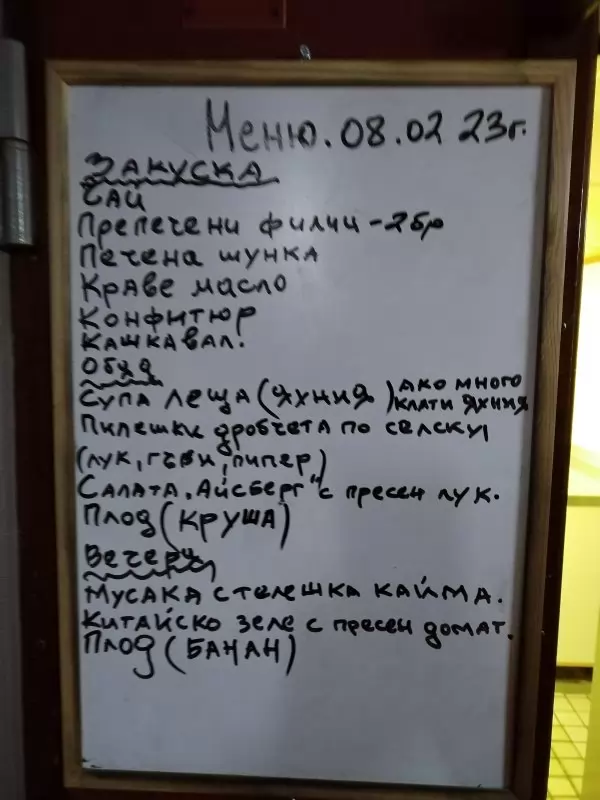 Меню. 08.02 23г.
ЗАКУСКА
ЧАЙ
Препечени филии - 2бр
Печена шунка
Краве масло
Конфитюр
Кашкавал.
Обяд
Супа леща (яхния) ако много
клати яхния
Пилешки дробчета по селску
(лук, гъби, пипер)
Салата „Айсберг" с пресен лук.
Плод (круша)
Вечеря
Мусака с телешка кайма.
Китайско зеле с пресен домат.
Плод (БАНАН)